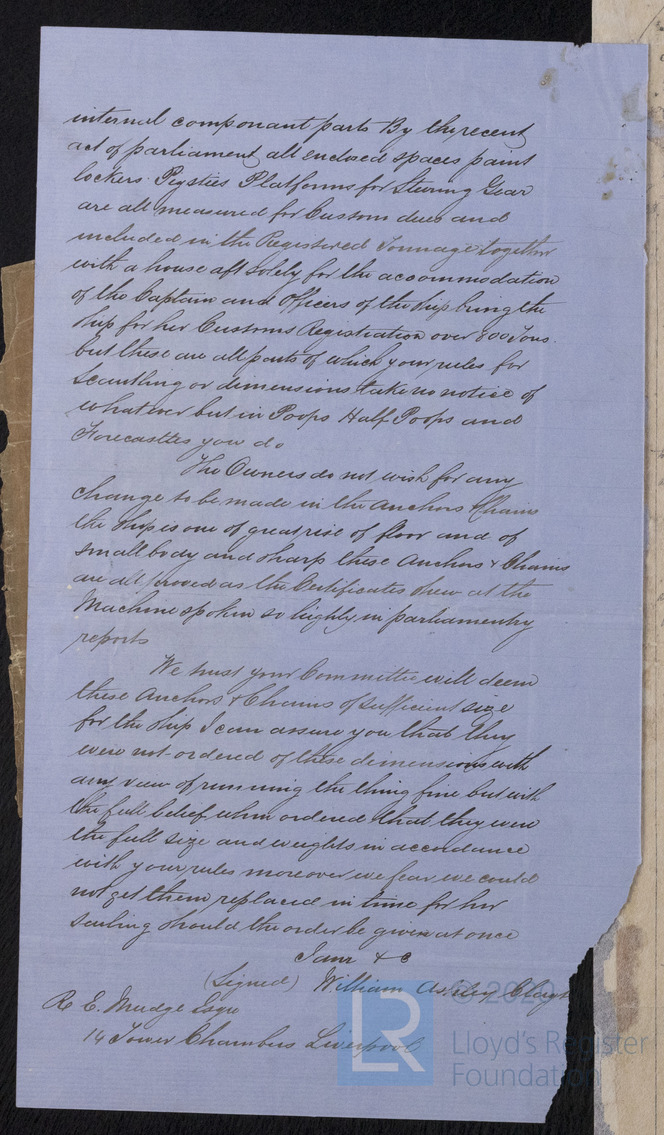 internal componant parts By the recent
act of parliament all enclosed spaces paint
lockers. Pigsties Platforms for Steering Gear
are all measured for Custom dues and
included in the Registered Tonnage together
with a house aft solely for the accommodation
of the Captain and Officers of the ship bring the
ship for her Customs Registration over 800 Tons.
but these are all parts of which your rules for
scantling or dimensions take no notice of
whatever but in Poops Half Poops and
Forecastles you do
The Owners do not wish for any
change to be made in the Anchors & Chains
the ship is one of great rise of floor and of
small body and sharp these Anchors & Chains
are all proved as the Certificates shew at the
Machine spoken so highly in parliamentry
reports
We trust your Committee will deem
these Anchors & Chains of sufficient size
for the ship I can assure you that they
were not ordered of these dimensions with
any view of running the thing fine but with
the full belief when ordered that they were
the full size and weights in accordance
with your rules moreover we fear we could
not get them replaced in time for her
sailing should the order be given at once
I am & c
(Signed) William
R E. Mudge Esqre
14 Tower Chambers Liverpool
LR
© 2020
Lloyd's Register
Foundation